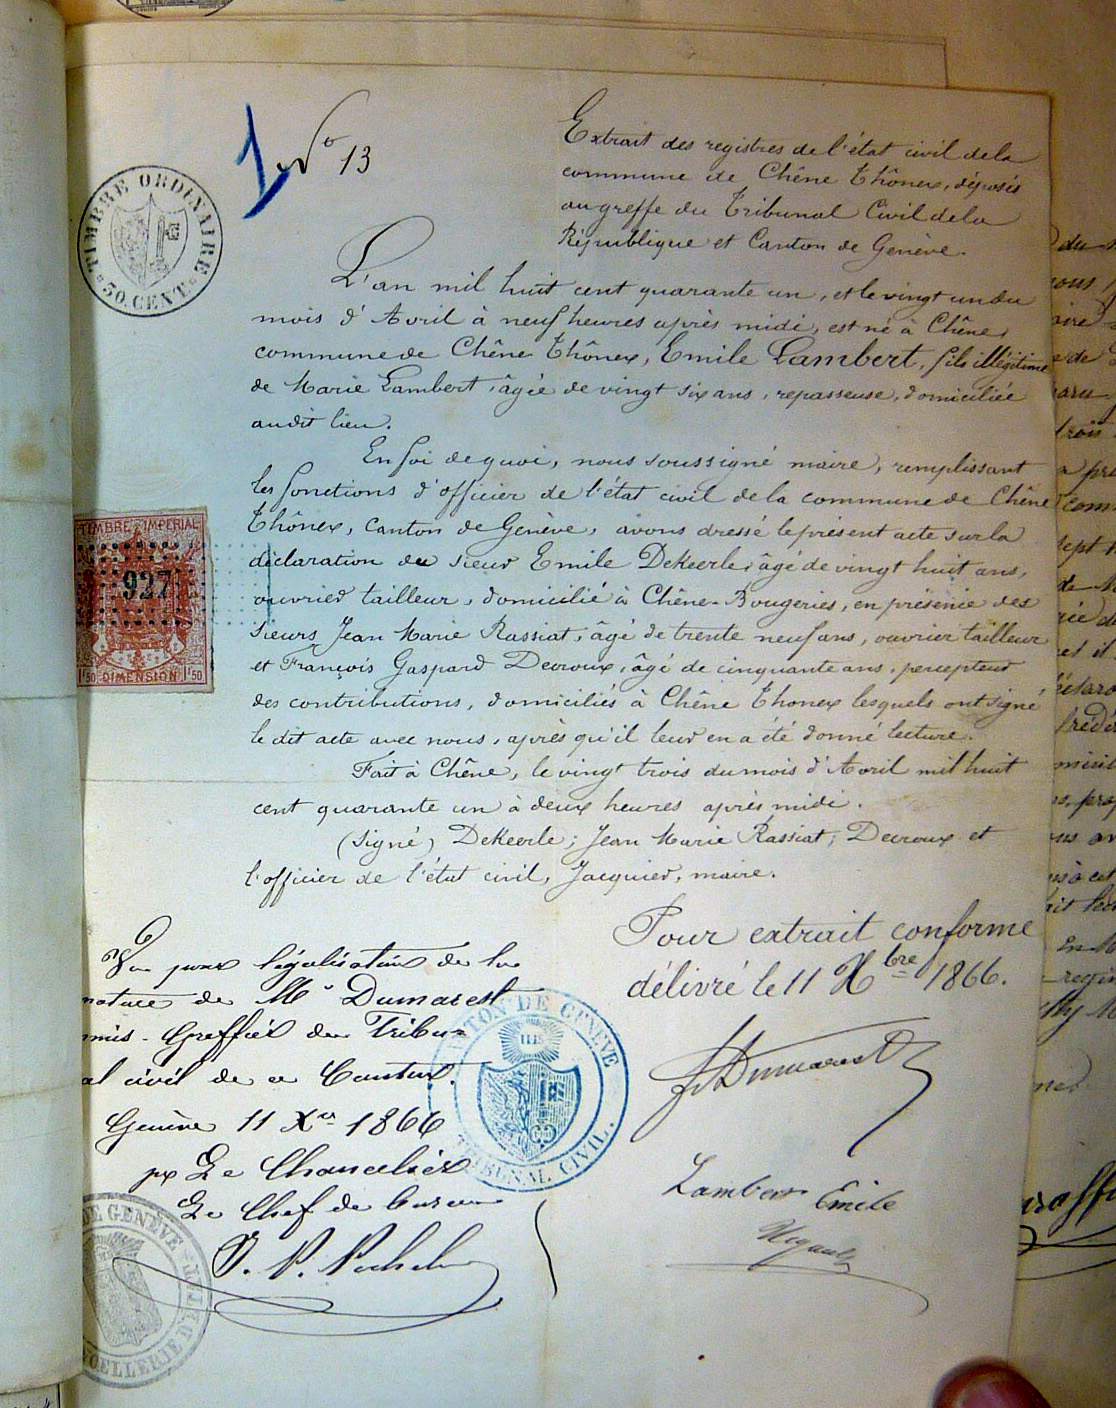 1
No 13
Extrait des registres de l'état civil de la
commune de Chêne Thônex, déposés
au greffe du Tribunal Civil de la
République et Canton de Genève.
TIMBRE ORDINAIRE
50. CENT.
L'an mil huit cent quarante un, et le vingt un du
mois d'Avril à neuf heures après midi, est né à Chêne,
commune de Chêne Thônex, Emile Lambert, fils illégitime
de Marie Lambert, âgée de vingt six ans, repasseuse, domiciliée
audit lieu.
En foi de quoi, nous soussigné maire, remplissant
les fonctions d'officier de l'état civil de la commune de Chêne
Thônex, Canton de Genève, avons dressé le présent acte sur la
déclaration du sieur Emile DeKeerle, âgé de vingt huit ans,
ouvrier tailleur, domicilié à Chêne-Bougeries, en présence des
sieurs Jean Marie Rassiat, âgé de trente neuf ans, ouvrier tailleur
et François Gaspard Decroux, âgé de cinquante ans, percepteur
des contributions, domiciliés à Chêne Thonex lesquels ont signé
le dit acte avec nous, après qu'il leur en a été donné lecture.
Fait à Chêne, le vingt trois du mois d'Avril mil huit
cent quarante un à deux heures après midi.
(Signé) DeKeerle; Jean Marie Rassiat; Decroux et
l'officier de l'état civil, Jacquier, maire.
TIMBRE IMPERIAL
927
1f50 DIMENSION 1f50
Pour extrait conforme
délivré le 11 Xbre 1866.
Dumarest
Lambert Emile
Vu pour légalisation de la
nature de Mr Dumarest
mis-Greffier du Tribu-
al civil de ce Canton.
Genève 11 Xre 1866
pr Le Chancelier
Le Chef de bureau
CANTON DE GENÈVE
TRIBUNAL CIVIL.
DE GENÈVE